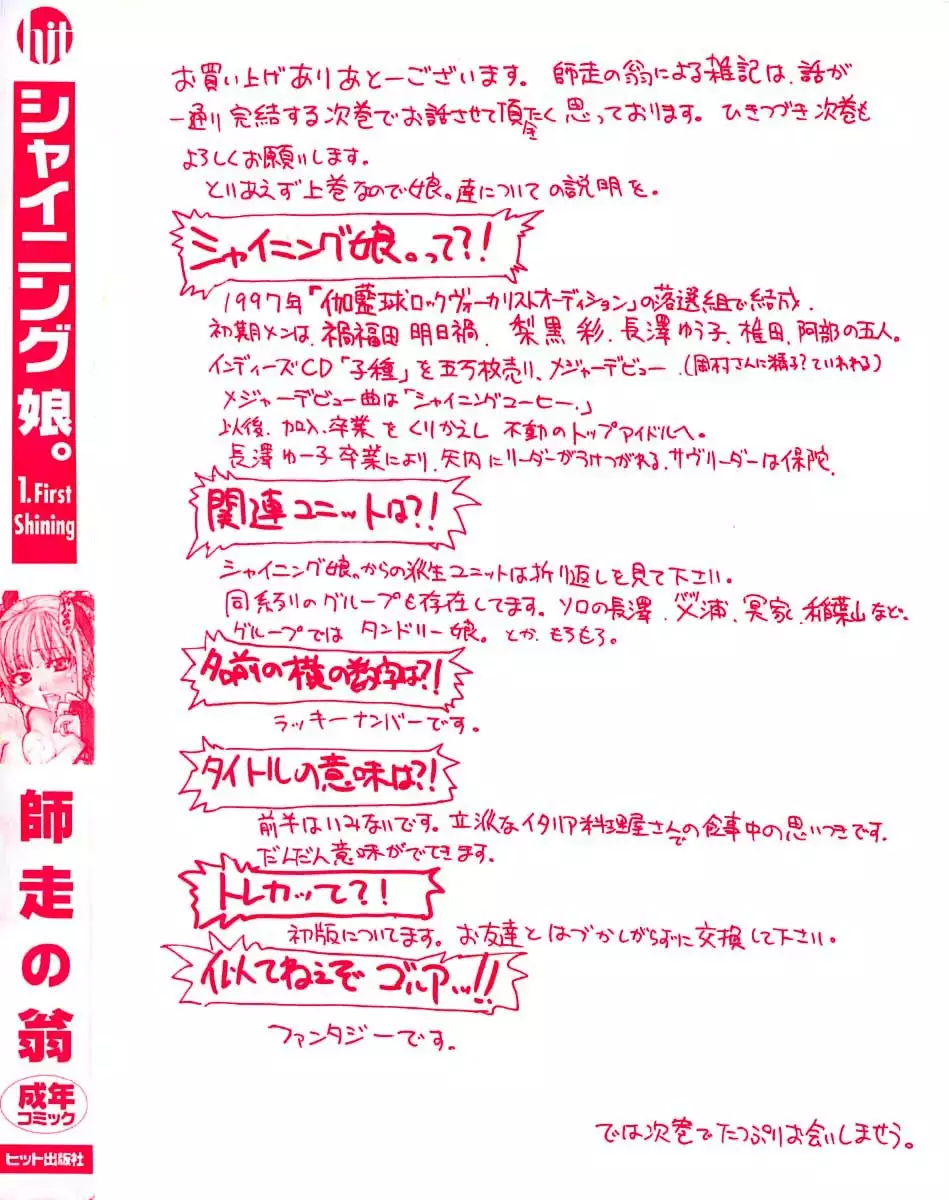 hit
シャイニング娘。
1. First
Shining
師走の翁
成年
コミック
ヒット出版社
お買い上げありあとーございます。 師走の翁による雑記は、話が
一通り完結する次巻でお話させて頂たく思っております。 ひきつづき次巻も
よろしくお願いします。
とりあえず上巻なので娘。達についての説明を。
シャイニング娘。って?!
1997年「伽藍球ロックヴォーカリストオーディション」の落選組で結成.
初期メンは、禍福田 明日禍、 梨黒 彩、長澤ゆう子、椎田、阿部の五人。
インディーズCD「子種」を五万枚売り、メジャーデビュー.(岡村さんに 子?ていわれる)
メジャーデビュー曲は「シャイニングコーヒー.」
以後、加入、卒業をくりかえし 不動のトップアイドルへ。
長澤ゆー子卒業により、矢内にリーダーがうけつがれる、サヴリーダーは保陀.
関連ユニットは?!
シャイニング娘。からの派生ユニットは折り返しを見て下さい。
同系列のグループも存在してます。ソロの長澤、 浦、冥家、稲葉山など。
グループでは タンドリー娘。とか、もろもろ。
名前の横の数字は?!
ラッキーナンバーです。
タイトルの意味は?!
前半はいみないです。立派なイタリア料理屋さんでの食事中の思いつきです。
だんだん意味がでてきます。
トレカッて?!
初版についてます。お友達とはづかしがらずに交換して下さい。
似てねぇぞ ゴルアッ!!
ファンタジーです。
では次巻でたっぷりお会いしませう。